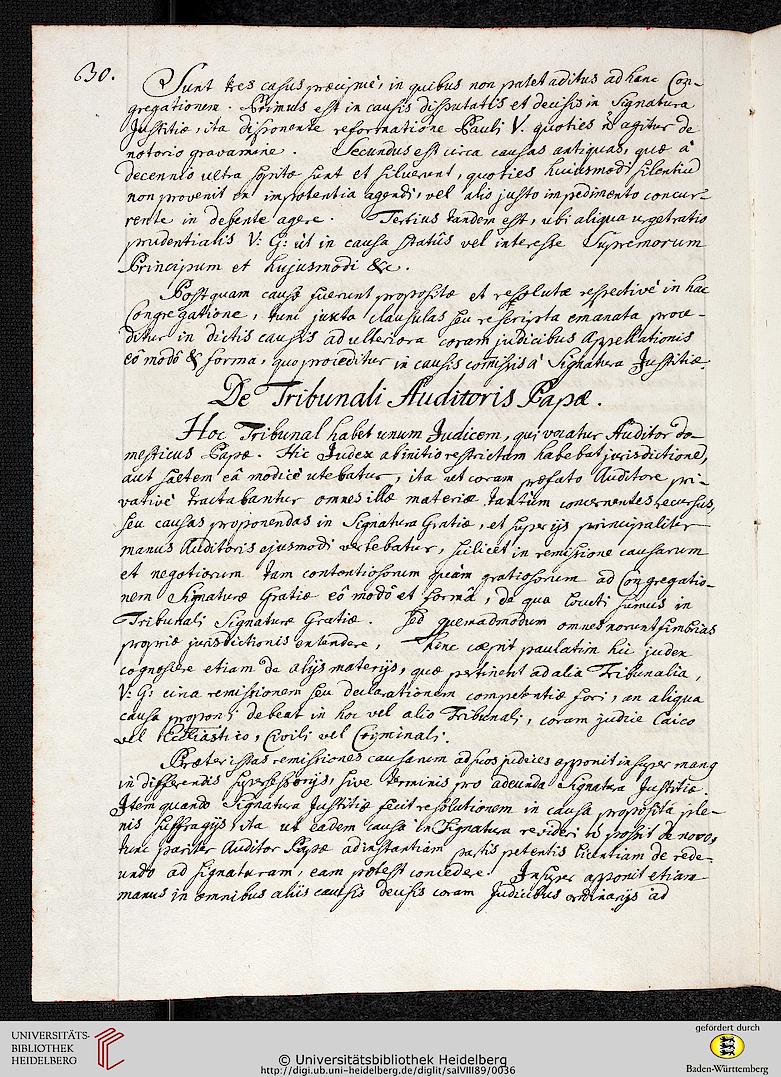 630.
Sunt tres casus præcipuè, in quibus non patet aditus ad hanc Con-
gregationem. Primus est in causis disputatis et decisis in Signatura
Justitiæ, ita disponente reformatione Pauli V. quoties agitur de
notorio gravamine. Secundus est circa causas antiquas, quæ à
decennio ultra sopitæ sunt et siluerunt, quoties huiusmodi silentiũ
non provenit ex impotentia agendi, vel alio justo impedimento concur-
rente in agere. Tertius tandem est, ubi aliqua urget ratio
prudentialis V: G: ut in causa statûs vel interesse Supremorum
Principum et hujusmodi &c.
Postquam causæ fuerunt propositæ et resolutæ respectivè in hac
Congregatione, tunc juxta clausulas seu rescripta emanata proce-
ditur in dictis causis ad ulteriora coram judicibus Appellationis
eô modô & forma, quo proceditur in causis com̃issis à Signatura Justitiæ.
De Tribunali Auditoris Papæ.
Hoc Tribunal habet unum Judicem, qui vocatur Auditor do-
mesticus Papæ. Hic Judex ab initio restrictam habebat jurisdictionẽ,
aut saltem eâ modicè utebatur, ita ut coram præfato Auditore pri-
vativè tractabantur omnes illæ materiæ tantùm concernentes recursus,
seu causas proponendas in Signatura Gratiæ, et super ijs principaliter
manus Auditoris ejusmodi vertebatur, scilicet in remissione causarum
et negotiorum tam contentiosorum quàm gratiosorum ad Congregatio-
nem Signaturæ Gratiæ eô modô et formâ, de qua locuti sumus in
Tribunali Signaturæ Gratiæ. Sed quemadmodum omnes norunt fimbrias
propriæ jurisdictionis extendere, hinc cæpit paulatim hic judex
cognoscere etiam de alijs materijs, quæ pertinent ad alia Tribunalia,
V: G: circa remissionem seu declarationem competentiæ fori, an aliqua
causa proponi debeat in hoc vel alio Tribunali, coram judice Laico
vel Ecclesiastico, Civili vel Criminali.
Præter istas remissiones causarum ad suos judices apponit insuper manũ
in differendis sive terminis pro adeunda Signatura Justitiæ.
Item quando Signatura Justitiæ fecit resolutionem in causa proposita ple-
nis suffragijs, ita ut eadem causa in Signatura revideri nõ possit de novo,
tunc pariter Auditor Papæ ad instantiam partis petentis licentiam de rede-
undo ad signaturam, eam potest concedere. Insuper apponit etiam
manus in omnibus aliis causis decisis coram Judicibus ordinarijs ad
UNIVERSITÄTS-
BIBLIOTHEK
HEIDELBERG
© Universitätsbibliothek Heidelberg
http://digi.ub.uni-heidelberg.de/diglit/salVIII89/0036
gefördert durch
Baden-Württemberg